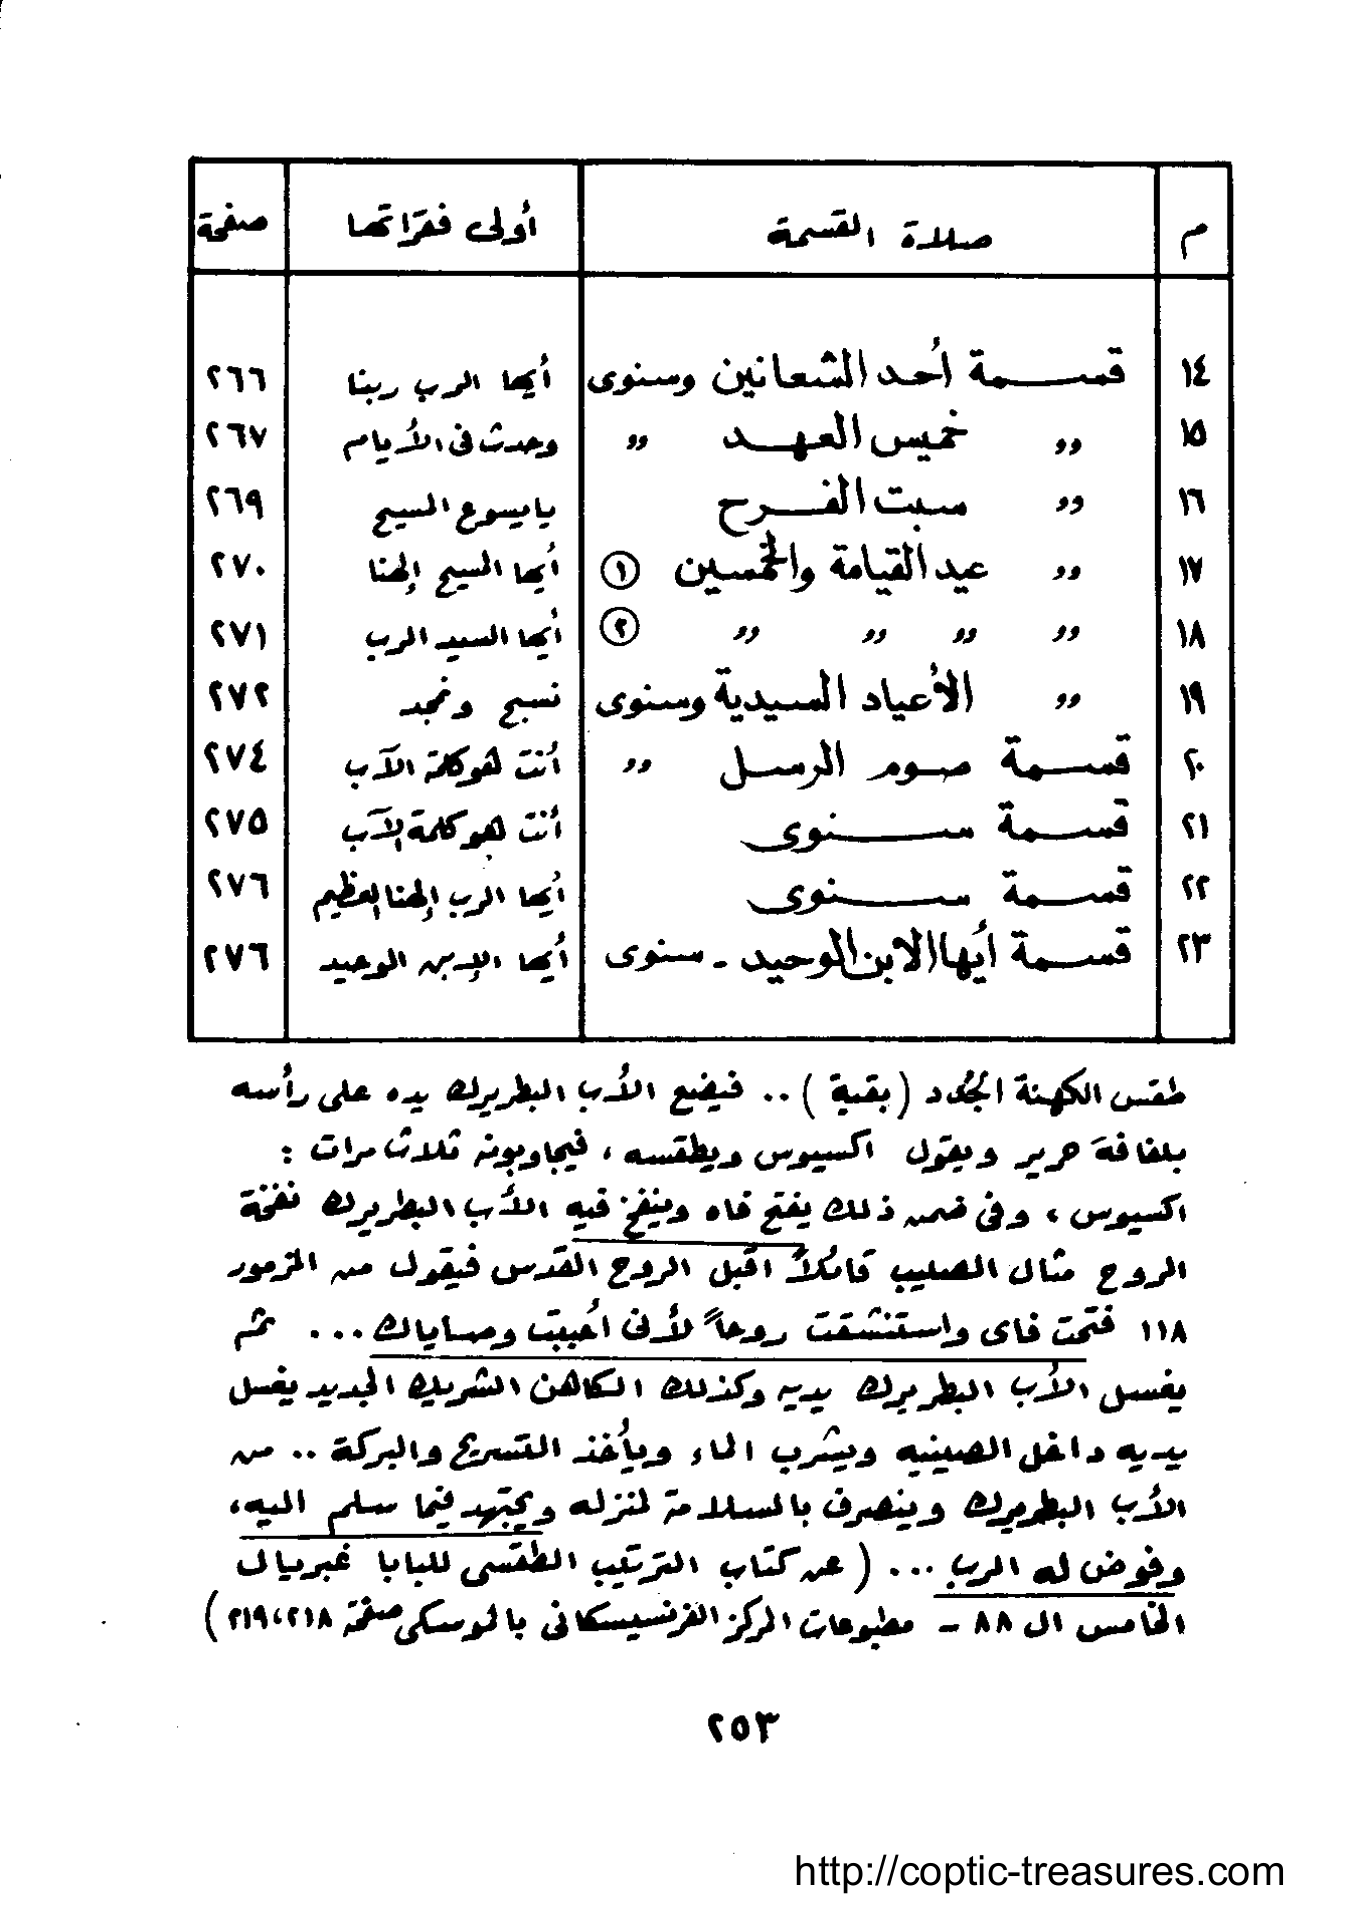 م صلاة القسمة أولى فقراتها صفحة
١٤ قسمة أحد الشعانين وسنوى أيها الرب ربنا ٢٦٦
١٥ ,, خميس العهد ,, وحدث فى الأيام ٢٦٧
١٦ ,, سبت الفرح يا يسوع المسيح ٢٦٩
١٧ ,, عيد القيامة والخمسين ① أيها المسيح إلهنا ٢٧٠
١٨ ,, ,, ,, ,, ② أيها السيد الرب ٢٧١
١٩ ,, الأعياد السيدية وسنوى نسبح ونمجد ٢٧٢
٢٠ قسمة صوم الرسل ,, أنت هو كلمة الآب ٢٧٤
٢١ قسمة سنوى أنت هو كلمة الآب ٢٧٥
٢٢ قسمة سنوى أيها الرب إلهنا العظيم ٢٧٦
٢٣ قسمة أيها الابن الوحيد - سنوى أيها الابن الوحيد ٢٧٦
طقس الكهنة الجُدد (بقية) .. فيضع الأب البطريرك يده على رأسه
بلفافة حرير ويقول اكسيوس ويطقسه ، فيجاوبونه ثلاث مرات :
اكسيوس ، وفى ضمن ذلك يفتح فاه وينفخ فيه الأب البطريرك نفخة
الروح مثال الصليب قائلاً اقبل الروح القدس فيقول من المزمور
١١٨ فتحت فاى واستنشقت روحاً لأنى أحببت وصاياك ... ثم
يغسل الأب البطريرك يديه وكذلك الكاهن الشريك الجديد يغسل
يديه داخل الصينيه ويشرب الماء ويأخذ التسريح والبركة .. من
الأب البطريرك وينصرف بالسلامة لمنزله ويجتهد فيما سلم اليه،
وفوض له الرب ... ( عن كتاب الترتيب الطقسى للبابا غبريال
الخامس ال ٨٨ - مطبوعات المركز الفرنسيسكانى بالموسكى صفحة ٢١٨،٢١٩ )
٢٥٣
http://coptic-treasures.com